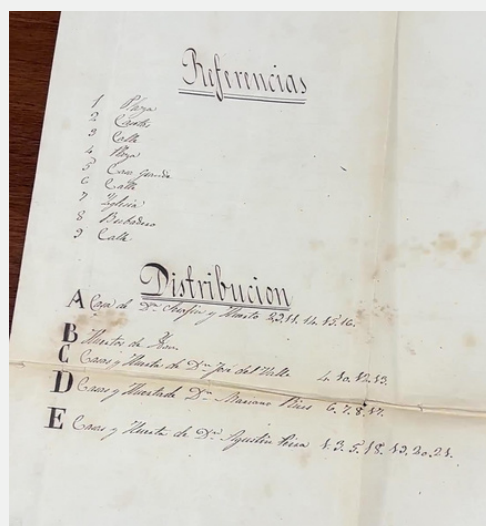 Referencias
1 Plaza
2
3 Calle
4 Plaza
5 Casa grande
6 Calle
7 Yglesia
8
9 Calle
Distribucion
A Casa de Dn Serafin y Huerto 2.9.11. 14. 15. 16.
B Huertos de
C Casas y Huerta de Dn José del Valle 4. 10. 12. 13.
D Casas y Huerta de Dn Mariano 6. 7. 8. 17.
E Casas y Huerta de Dn Agustin 1. 3. 5. 18. 19. 20. 21.